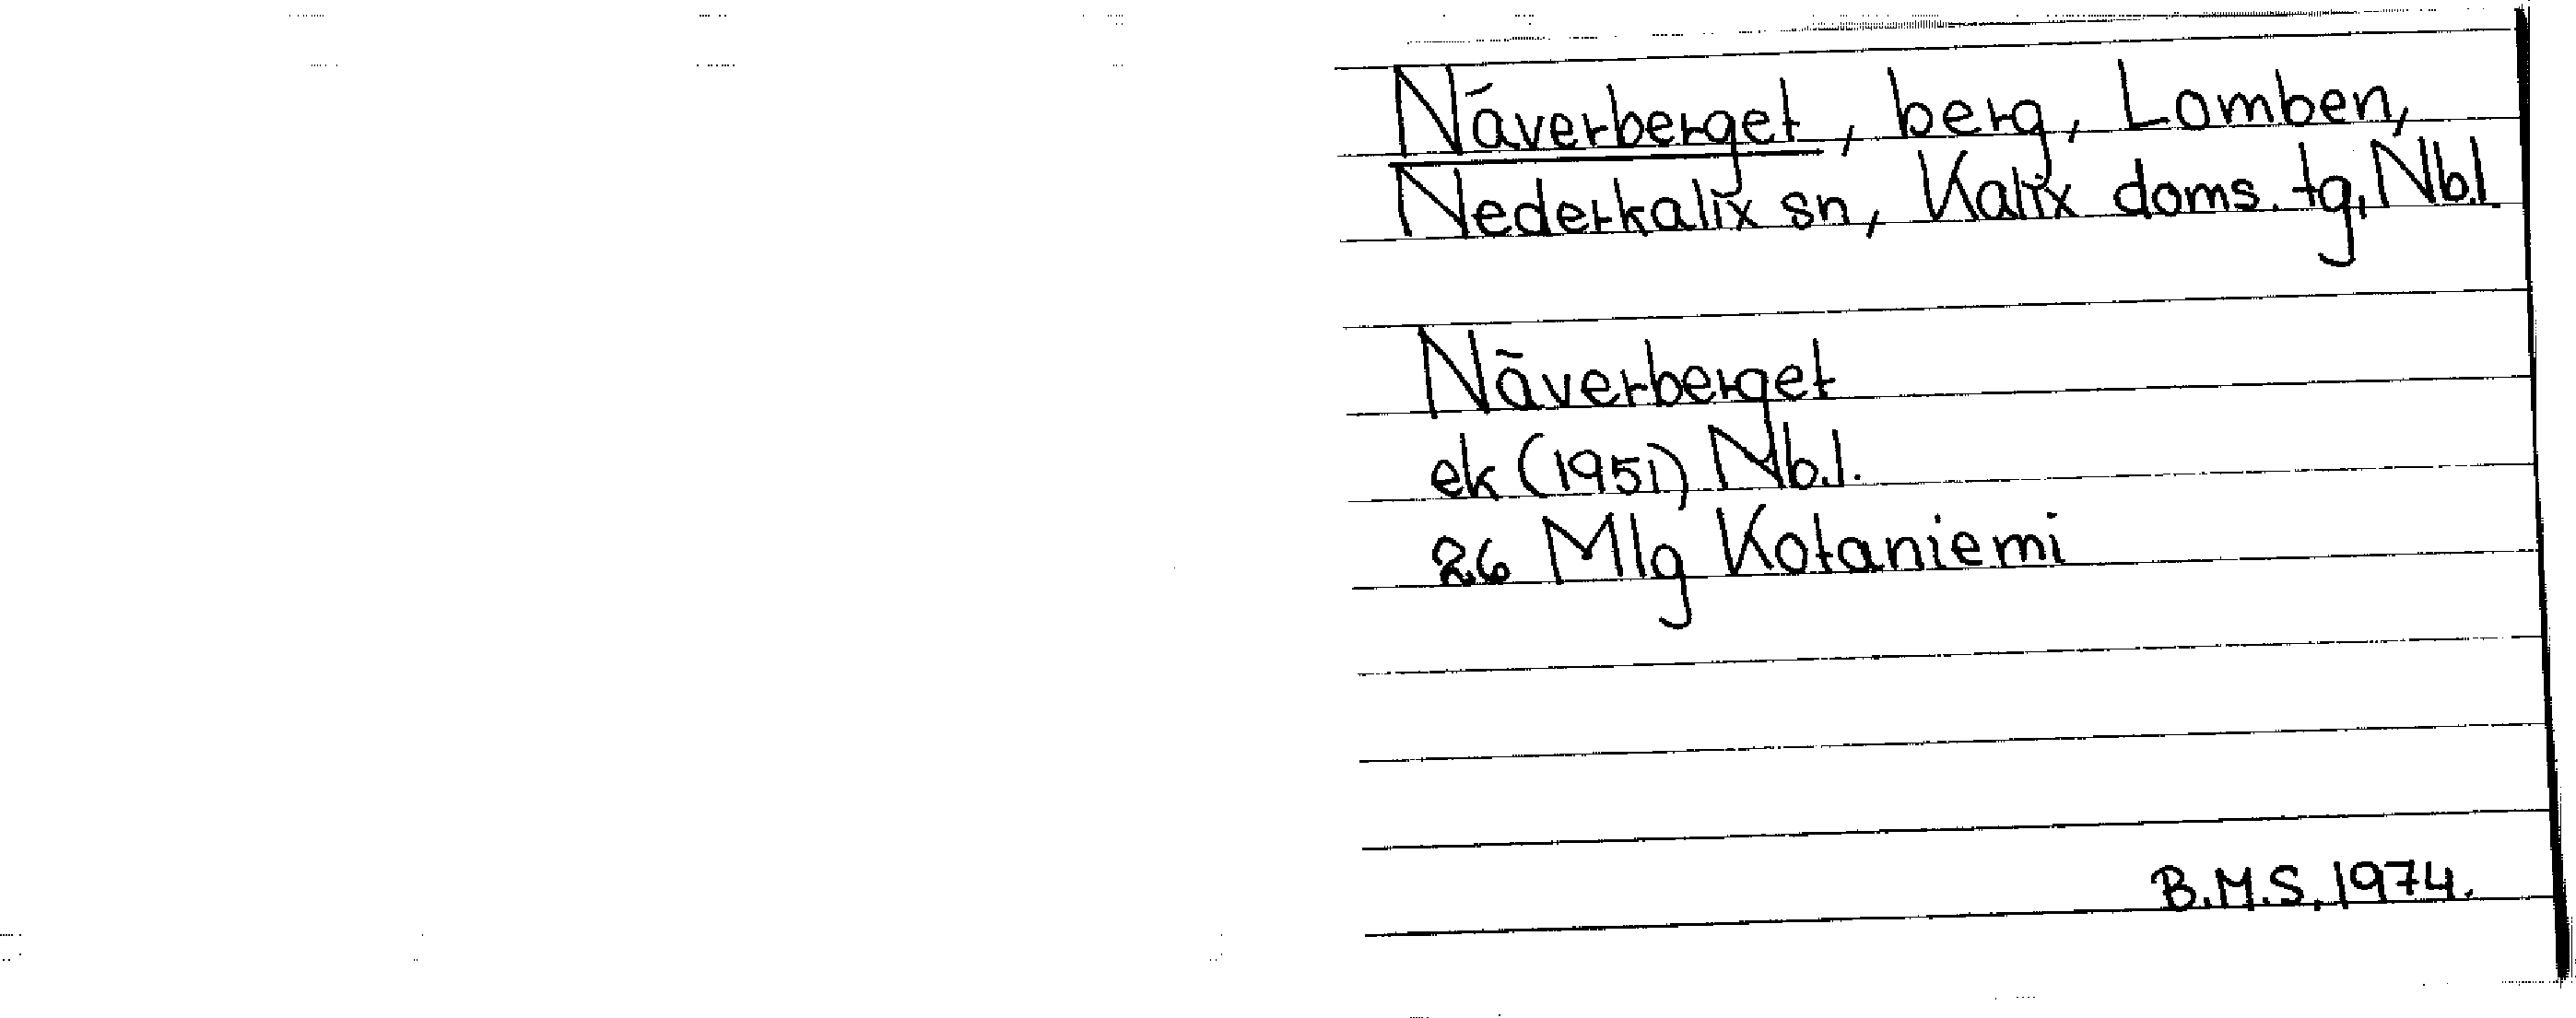 Näverberget, berg, Lomben,
Nederkalix sn, Kalix doms. tg, Nb.l.
Näverberget
ek (1951) Nb.l.
26 Mlg Kotaniemi
B.M.S. 1974.